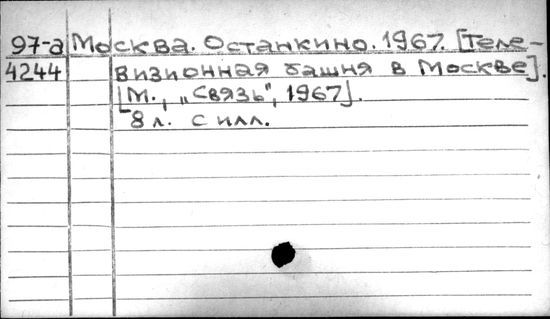 97-а Москва. Останкино. 1967. [Теле-
4244 визионная башня в Москве].
[М., „Связь", 1967].
8 л. с илл.